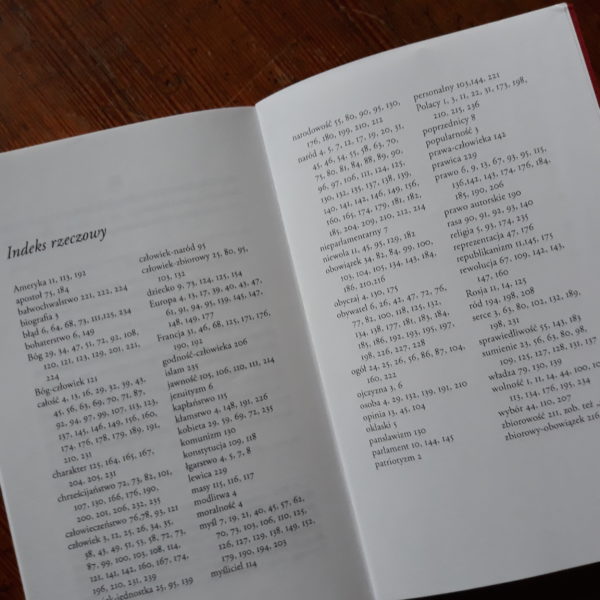 Indeks rzeczowy
Ameryka 11, 113, 192
apostoł 75, 184
bałwochwalstwo 221, 222, 224
biografia 3
błąd 6, 64, 68, 73, 111,125, 234
bohaterstwo 6, 149
Bóg 29, 34, 47, 51, 72, 92, 108,
120, 121, 123, 129, 201, 221,
224
Bóg-człowiek 121
całość 4, 13, 16, 29, 32, 39, 43,
45, 56, 63, 69, 70, 71, 87,
92, 94, 97, 99, 107, 113, 123,
137, 145, 146, 149, 156, 160,
174, 176, 178, 179, 189, 191,
210, 231
charakter 125, 164, 165, 167,
204, 205, 231
chrześcijaństwo 72, 73, 82, 101,
107, 130, 166, 176, 190,
200, 201, 206, 232, 235
człowieczeństwo 76,78, 93, 121
człowiek 3, 11, 25, 26, 34, 35,
38, 43, 49, 51, 53, 58, 72, 73,
87, 99, 100, 103, 108, 114,
121, 141, 142, 160, 167, 174,
196, 210, 231, 239
25, 95, 139
człowiek-naród 95
człowiek-zbiorowy 25, 80, 95,
103, 132
dziecko 9, 73, 124, 125, 154
Europa 4, 13, 17, 39, 40, 43, 47,
61, 91, 94, 95, 139, 145, 147,
148, 149, 177
Francja 31, 46, 68, 125, 171, 176,
190, 192
godność-człowieka 206
islam 235
jawność 105, 106, 110, 111, 214
jezuityzm 6
kapłaństwo 115
kłamstwo 4, 148, 191, 226
kobieta 29, 59, 69, 72, 235
komunizm 130
konstytucja 109, 118
łgarstwo 4, 5, 7, 8
lewica 229
masy 115, 116, 117
modlitwa 4
moralność 4
myśl 7, 19, 21, 40, 45, 57, 62,
70, 73, 103, 106, 110, 125,
126, 127, 129, 138, 149, 152,
179, 190, 194, 203
myśliciel 114
narodowość 55, 80, 90, 95, 130,
176, 180, 199, 210, 212
naród 4, 5, 7, 12, 17, 19, 20, 31,
45, 46, 54, 55, 58, 63, 70,
73, 80, 81, 84, 88, 89, 90,
96, 97, 106, 111, 124, 125,
130, 132, 135, 137, 138, 139,
140, 141, 142, 146, 149, 156,
160, 165, 174, 179, 181, 182,
185, 204, 209, 210, 212, 214
nieparlamentarny 7
niewola 11, 45, 95, 129, 182
obowiązek 34, 82, 84, 99, 100,
103, 104, 105, 134, 143, 184,
186, 210,216
obyczaj 4, 130, 175
obywatel 6, 26, 42, 47, 72, 76,
77, 82, 100, 118, 125, 132,
134, 138, 177, 181, 183, 184,
185, 186, 192, 193, 195, 197,
198, 226, 227, 228
ogół 24, 25, 26, 56, 86, 87, 104,
160, 222
ojczyzna 3, 6
osoba 4, 29, 132, 139, 191, 210
opinia 13, 45, 104
oklaski 5
panslawizm 130
parlament 10, 144, 145
patriotyzm 2
personalny 103,144, 221
Polacy 1, 3, 11, 22, 31, 173, 198,
210, 215, 236
poprzednicy 8
popularność 3
prawa-człowieka 142
prawica 229
prawo 6, 9, 13, 67, 93, 95, 115,
136,141, 143, 174, 176, 184,
185, 190, 206
prawo autorskie 190
rasa 90, 91, 92, 93, 140
religia 5, 93, 174, 235
reprezentacja 47, 176
republikanizm 11,145, 175
rewolucja 67, 109, 142, 143,
147, 160
Rosja 11, 14, 125
ród 194, 198, 208
serce 3, 63, 80, 102, 132, 189,
198, 231
sprawiedliwość 55, 143, 183
sumienie 23, 56, 63, 80, 98,
109, 125, 127, 128, 131, 137
władza 79, 130, 139
wolność 1, 11, 14, 44, 100,
113, 134, 176, 195, 234
wybór 44, 110, 207
zbiorowość 211, zob. też
zbiorowy-obowiązek 216